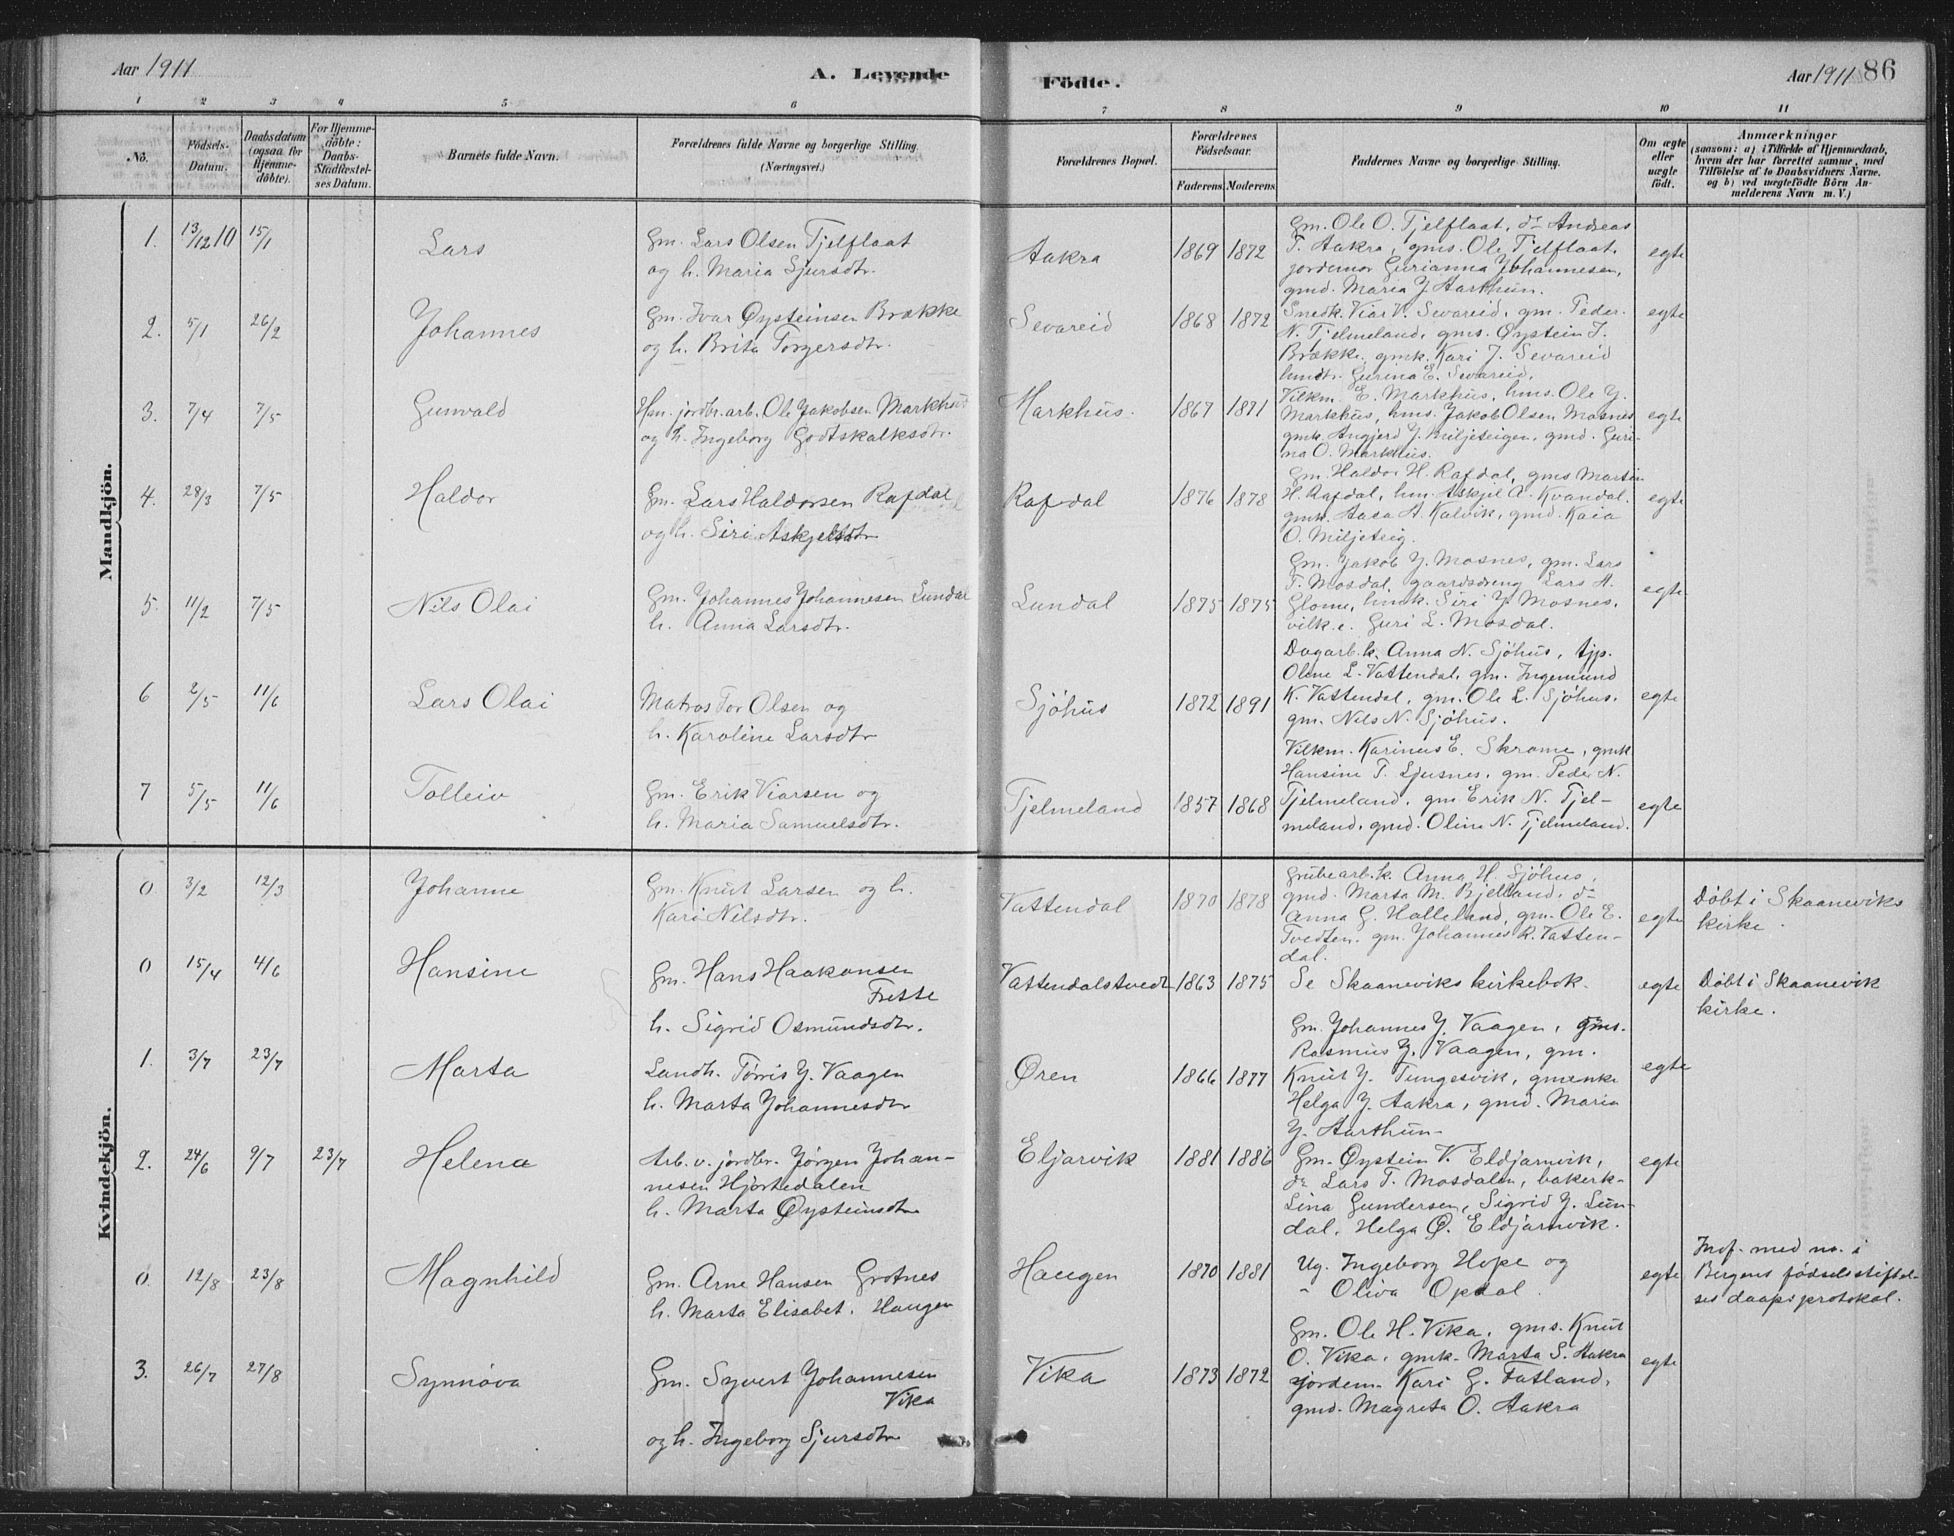 Aar 1911
A. Levende
Födte.
Aar 1911
86
1 2 3 4 5 6 7 8 9 10 11
No.
Födsels-
Datum.
Daabsdatum
(ogsaa for
Hjemme-
döbte).
For Hjemme-
döbte:
Daabs-
Stadfæstel-
ses Datum.
Barnets fulde Navn.
Forældrenes fulde Navne og borgerlige Stilling.
(Næringsvei.)
Forældrenes Bopæl.
Forældrenes
Födselsaar.
Faderens.
Moderens.
Faddernes Navne og borgerlige Stilling.
Om ægte
eller
uægte
födt.
Anmærkninger
(saasom: a) i Tilfælde af Hjemmedaab,
hvem der har forrettet samme, med
Tilföielse af to Daabsvidners Navne,
og b) ved uægtefödte Börn An-
melderens Navn m. V.)
Mandkjön.
1. 13/12 10 15/1
Lars
Gm. Lars Olsen Tjelflaat
og h. Maria Sjursdtr.
Aakra
1869 1872
Gm. Ole O. Tjelflaat, do Andreas
T. Aakra, gms. Ole Tjelflaat,
jordemor Gurianna Johannesen,
gmd. Maria J. Aarthun.
egte
2. 5/1 26/2
Johannes
Gm. Ivar Øysteinsen Brække
og h. Brita Torgersdtr.
Sevareid
1868 1872
Snedk. Viar V. Sevareid, gm. Peder
N. Tjelmeland, gms. Øystein I.
Brække, gmk. Kari J. Sevareid
Gurina E. Sevareid.
egte
3. 7/4 7/5
Gunvald
Hm. jordbr. arb. Ole Jakobsen Markhus
og h. Ingeborg Godtskalksdtr.
Markhus.
1867 1871
Vilkm. E. Markhus, hms. Ole Y.
Markhus, hms. Jakob Olsen Mosnes
gmk. Angjerd J. Miljeteigen, gmd. Guri-
na O. Markhus.
egte
4. 28/3 7/5
Haldor
Gm. Lars Haldorsen Rafdal
og h. Siri Askjelsdtr
Rafdal
1876 1878
Gm. Haldor H. Rafdal, gms Martin
H. Rafdal, hm. Askjel A. Kvandal.
gmk. Aasa A. Kalvik, gmd. Kaia
O. Miljeteig.
egte
5. 11/2 7/5
Nils Olai
Gm. Johannes Johannesen Lundal
h. Anna Larsdtr.
Lundal
1875 1875
Gm. Jakob J. Mosnes, gm. Lars
T. Mosdal, gaardsdreng Lars A.
Glome, hmk. Siri J. Mosnes,
vilk. e. Guri L. Mosdal.
egte
6 2/5 11/6
Lars Olai
Matros Tor Olsen og
h. Karoline Larsdtr
Sjöhus
1872 1891
Dagarb. k. Anna N. Sjöhus, tjp.
Oline L. Vattendal, gm. Ingemund
K. Vattendal, gm. Ole L. Sjöhus.
gm. Nils N. Sjöhus.
egte
7 5/5 11/6
Tolleiv
Gm. Erik Viarsen og
h. Maria Samuelsdtr.
Tjelmeland
1857 1868
Vilkm. Karinus E. Skrome, gmk
Hansine T. Ljusnes, gm. Peder N.
Tjelmeland, gm Erik N. Tjel-
meland, gmd. Oline N. Tjelmeland.
egte
Kvindekjön.
0 3/2 12/3
Johanne
Gm. Knut Larsen og h.
Kari Nilsdtr.
Vattendal
1870 1878
Grubearb. k. Anna H. Sjöhus,
gmd. Marta M. Bjelland, do
Anna G. Halleland, gm. Ole E.
Tvedten. gm. Johannes K. Vatten-
dal.
egte
Döbt i Skaaneviks
kirke.
0 15/4 4/6
Hansine
Gm. Hans Haakonsen
Frette
h. Sigrid Osmundsdtr.
Vattendalstvedt
1863 1875
Se Skaaneviks kirkebok.
egte
Döbt i Skaanevik
kirke.
1. 3/7 23/7
Marta
Landh. Tørris J. Vaagen
h. Marta Johannesdtr
Øren
1866 1877
Gm. Johannes J. Vaagen, gms.
Rasmus J. Vaagen, gm.
Knut J. Tungesvik, gmenke
Helga J. Aakra, gmd. Maria
J. Aarthun-
egte
2. 24/6 9/7 23/7
Helena
Arb. v. jordbr. Jörgen Johan-
nesen Hjortedalen
h. Marta Øysteinsdtr
Eljarvik
1881 1886
Gm. Øystein V. Eldjarnvik,
do Lars T. Mosdalen, bakerk-
Lina Gundersen, Sigrid J. Lun-
dal, Helga Ø. Eldjarnvik.
egte
0. 12/8 23/8
Magnhild
Gm. Arne Hansen Grotnes
h. Marta Elisabet. Haugen
Haugen
1870 1881
Ug. Ingeborg Hope og
" Oliva Opdal.
egte
Inf. med no. i
Bergens födselsstiftel-
ses daapsprotokol.
3. 26/7 27/8
Synnöva
Gm. Syvert Johannesen
Vika
og h. Ingeborg Sjursdtr
Vika
1873 1872
Gm. Ole H. Vika, gms. Knut
O. Vika, gmk. Marta S. Aakra
jordem. Kari G. Fatland,
gmd. Magreta O. Aakra
egte